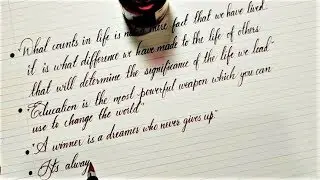 • What counts in life is not mere fact that we have lived
it is what difference we have made to the life of others
that will determine the significance of the life we lead"
• "Education is the most powerful weapon which you can
use to change the world"
• "A winner is a dreamer who never gives up."
• It's alway